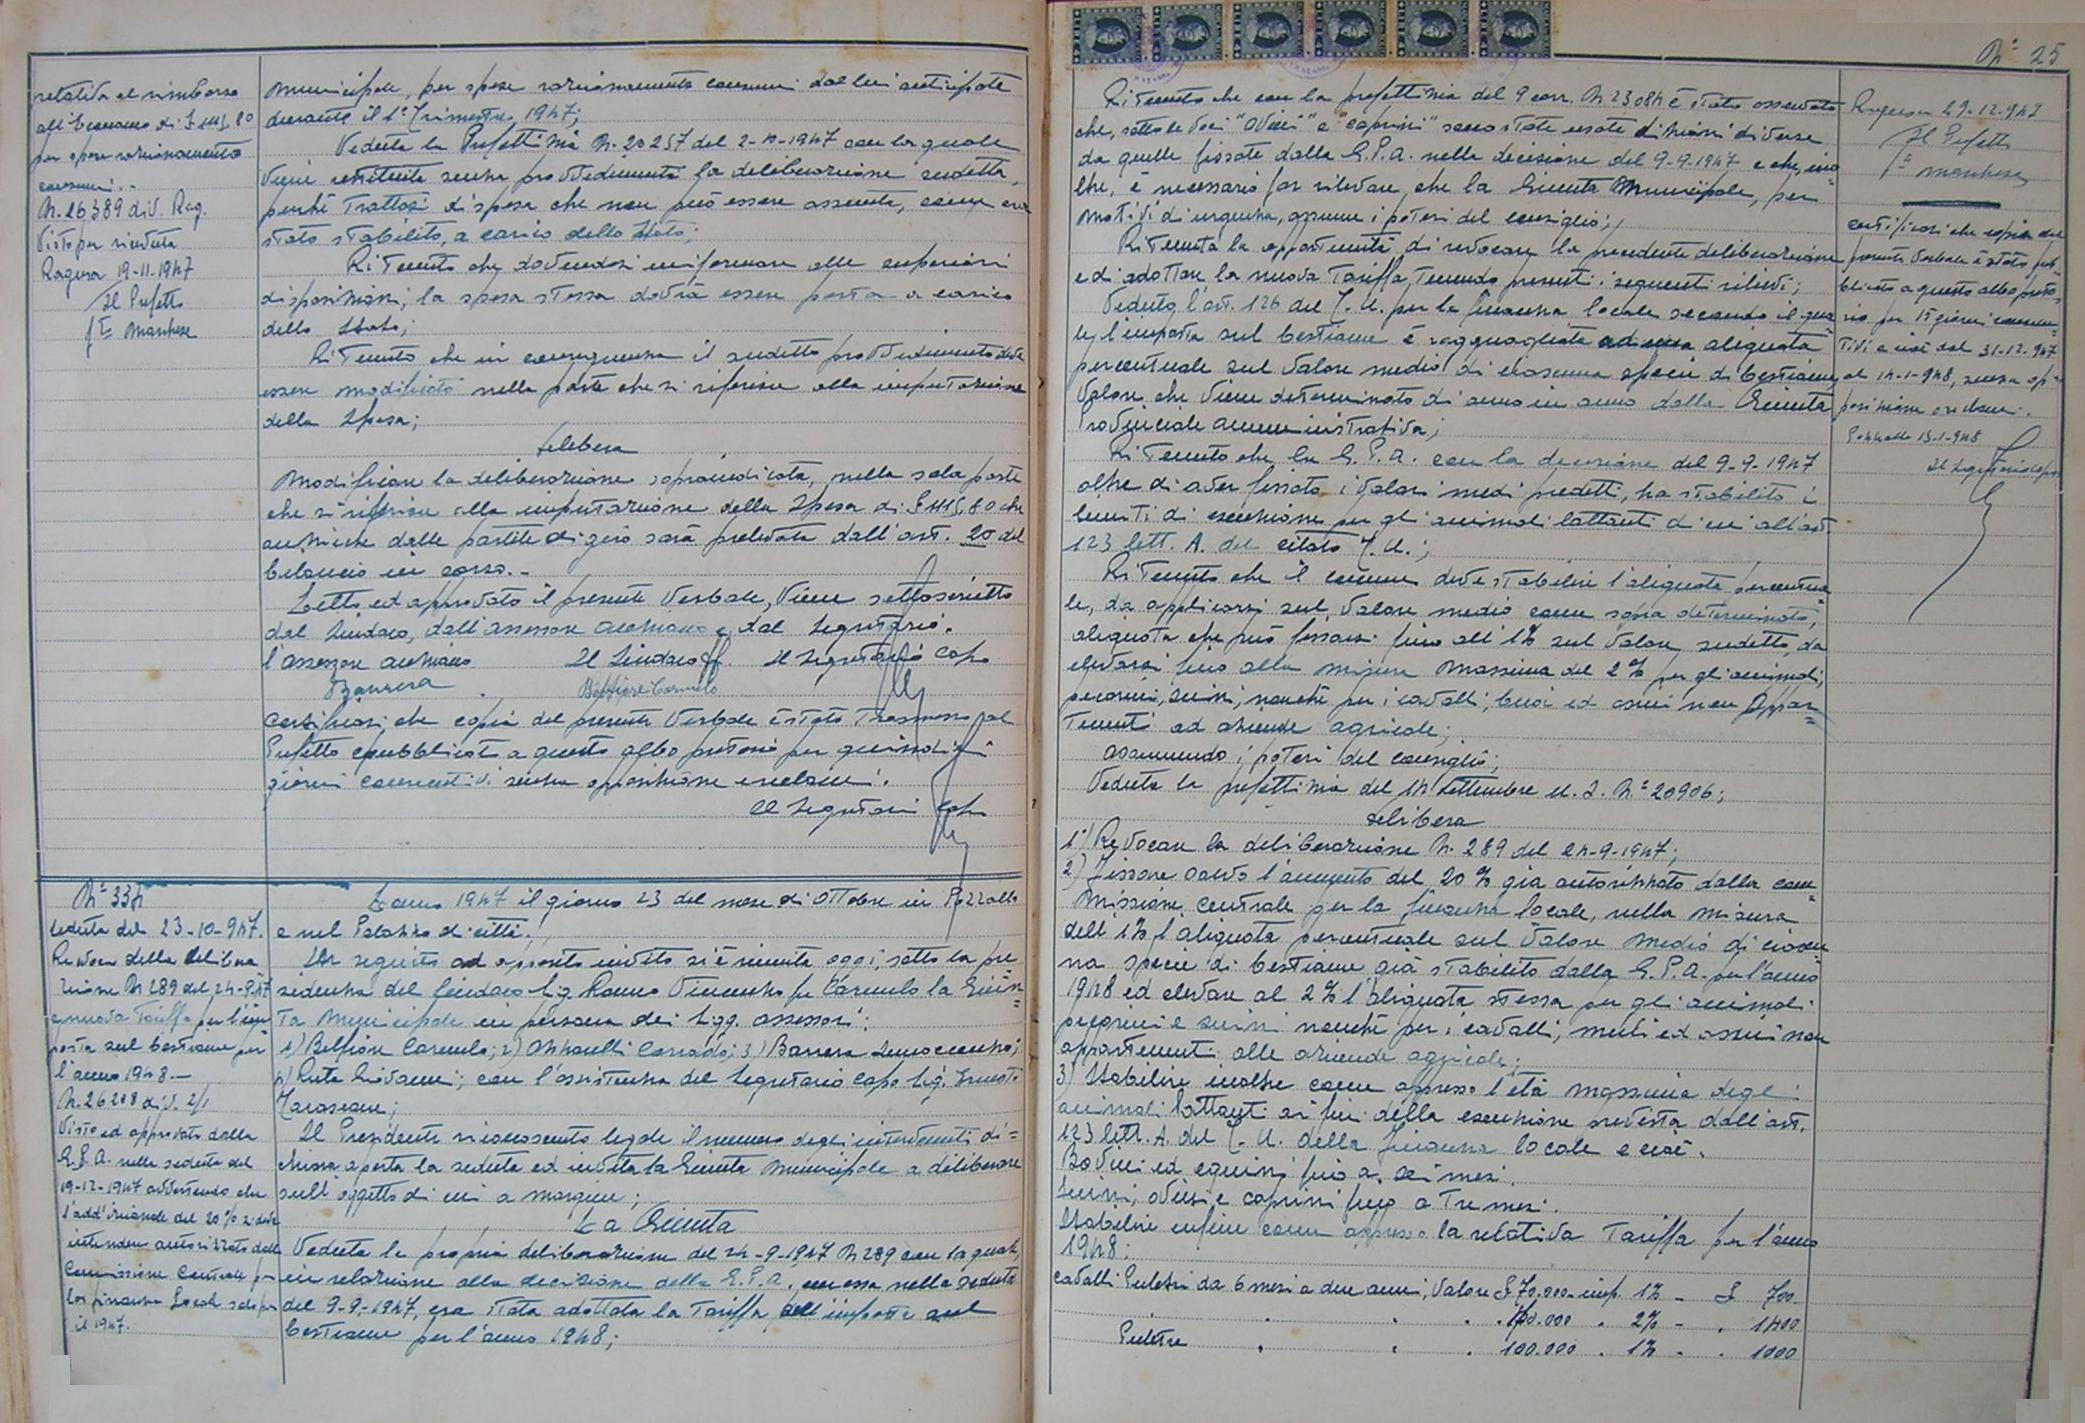 relativa al rimborso
all'Economo di £ 1115,80
per spese razionamento
consumi. -
N. 26389 div. Rag.
Visto per ricevuta
Ragusa 19-11-1947
Il Prefetto
f.to Marchese
municipale, per spese razionamento consumi dal lui anticipate
durante il 1° Trimestre 1947;
Veduta la Prefettizia N. 20257 del 2-10-1947 con la quale
viene restituita senza provvedimenti la deliberazione sudetta,
perché trattasi di spesa che non può essere assunta, come era
stato stabilito, a carico dello Stato;
Ritenuto che dovendosi uniformare alle superiori
disposizioni, la spesa stessa dovrà essere posta a carico
dello Stato;
Ritenuto che in conseguenza il sudetto provvedimento deve
essere modificato nella parte che si riferisce alla imputazione
della Spesa;
Delibera
Modificare la deliberazione sopraindicata, nella sola parte
che si riferisce alla imputazione della Spesa di £ 1115,80 che
anziché dalle partite di giro sarà prelevata dall'art. 20 del
bilancio in corso. -
Letto ed approvato il presente Verbale, viene sottoscritto
dal Sindaco, dall'assessore anziano e dal Segretario.
l'assessore anziano Il Sindaco ff. Il Segretario Capo
Barrera Belfiore Carmelo
Certificasi che copia del presente Verbale è stata trasmessa al
Prefetto e pubblicata a questo albo pretorio per quindici
giorni consecutivi senza opposizione e reclami.
Il Segretario Capo
N° 334
Seduta del 23-10-947.
Revoca della delibera
zione N 289 del 24-9-47
e nuova Tariffa per l'im
posta sul bestiame per
l'anno 1948. -
N. 26208 div. 2/1
Visto ed approvato dalla
G.P.A. nella seduta del
19-12-1947 avvertendo che
l'add'izionale del 20% si deve
intendere autorizzata dalla
Commissione Centrale per
la finanza Locale solo per
il 1947.
L'anno 1947 il giorno 23 del mese di Ottobre in Pozzallo
e nel Palazzo di città.
In seguito ad apposito invito si è riunita oggi, sotto la pre=
sidenza del Sindaco Sig. Romeo Vincenzo fu Carmelo la Giun=
ta Municipale in persona dei Sigg. assessori:
1) Belfiore Carmelo; 2) Azzarelli Corrado; 3) Barrera Innocenzo;
4) Ruta Giovanni; con l'assistenza del Segretario Capo Sig. Ernesto
Il Presidente riconosciuto legale il numero degli intervenuti di=
chiara aperta la seduta ed invita la Giunta Municipale a deliberare
sull'oggetto di cui a margine;
La Giunta
Veduta la propria deliberazione del 24-9-1947 N 289 con la quale,
in relazione alla decisione della G.P.A. emessa nella seduta
del 9-9-1947, era stata adottata la Tariffa dell'imposta sul
bestiame per l'anno 1948;
N° 25
Ritenuto che con la prefettizia del 9 corr. N 23084 è stato osservato
che, sotto le voci "ovini" e "caprini" sono state usate dizioni diverse
da quelle fissate dalla G.P.A. nella decisione del 9-9-1947 e che, ino
ltre, è necessario far rilevare che la Giunta Municipale, per
motivi di urgenza, assume i poteri del consiglio;
Ritenuta la opportunità di revocare la precedente deliberazione
e di adottare la nuova Tariffa, tenendo presenti i seguenti rilievi;
Veduto l'art. 126 del T.U. per la finanza locale secondo il qua
le, l'imposta sul bestiame è ragguagliata ad una aliquota
percentuale sul valore medio di ciascuna specie di bestiame,
valore che viene determinato di anno in anno dalla Giunta
Provinciale amministrativa;
Ritenuto che la G.P.A. con la decisione del 9-9-1947
oltre di aver fissato i valori medi predetti, ha stabilito i
limiti di esenzione per gli animali lattanti di cui all'art
123 lett. A. del citato T.U.;
Ritenuto che il comune deve stabilire l'aliquota percentua=
le, da applicarsi sul valore medio come sopra determinato,
aliquota che può fissarsi fino all'1% sul valore sudetto, da
elevarsi fino alla misura massima del 2% per gli animali,
pecorini, suini, nonché per i cavalli, buoi ed asini non appar=
tenenti ad aziende agricole;
assumendo i poteri del consiglio;
Veduta la prefettizia del 14 Settembre u.s. N° 20906;
Delibera
1°) Revocare la deliberazione N. 289 del 24-9-1947;
2) Fissare salvo l'aumento del 20% già autorizzato dalla com=
missione centrale per la finanza locale, nella misura
dell'1% l'aliquota percentuale sul valore medio di ciascu
na specie di bestiame già stabilito dalla G.P.A. per l'anno
1948 ed elevare al 2% l'aliquota stessa per gli animali
pecorini e suini nonché per i cavalli, muli ed asini non
appartenenti alle aziende agricole;
3) Stabilire inoltre come appresso l'età massima degli
animali lattanti ai fini della esenzione prevista dall'art.
123 lett. A. del T.U. della finanza locale e cioè.
Bovini ed equini fino a sei mesi.
Suini, ovini e caprini fino a tre mesi.
Stabilire infine come appresso la relativa Tariffa per l'anno
1948:
Cavalli Puledri da 6 mesi a due anni, valore £ 70.000 - imp. 1% - £ 700.
" " " . 70.000 . 2% - . 1400
Puledre " " . 100.000 . 1% - . 1000
Ragusa 29-12-947
Il Prefetto
f.to Marchese
Certificasi che copia del
presente Verbale è stata pub=
blicata a questo albo preto=
rio per 15 giorni consecu=
tivi e cioè dal 31-12-947
al 14-1-948, senza op=
posizione o reclami.
Pozzallo 15-1-948
Il Segretario Capo